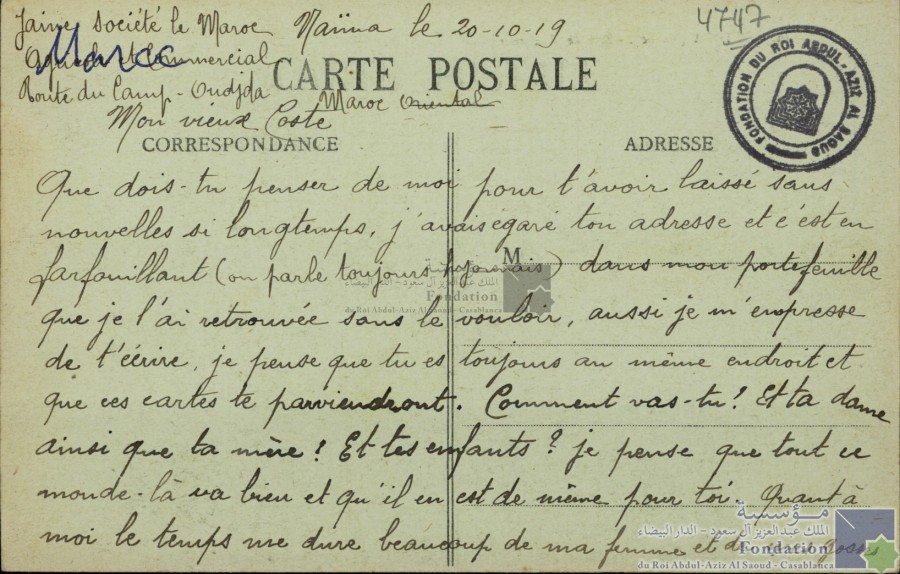 Jaine Société le Maroc Naïma le 20-10-19
4747
Agricole et Commercial
Maroc
CARTE POSTALE
Route du Camp - Oudjda Maroc Oriental
Mon vieux Coste
CORRESPONDANCE ADRESSE
FONDATION DU ROI ABDUL-AZIZ AL SAOUD
Que dois-tu penser de moi pour t'avoir laissé sans
nouvelles si longtemps, j'avais égaré ton adresse et c'est en
farfouillant (on parle toujours lyonnais) dans mon portefeuille
que je l'ai retrouvée sans le vouloir, aussi je m'empresse
de t'écrire, je pense que tu es toujours au même endroit et
que ces cartes te parviendront. Comment vas-tu! Et ta dame
ainsi que ta mère! Et tes enfants? je pense que tout ce
monde-là va bien et qu'il en est de même pour toi. Quant à
moi le temps me dure beaucoup de ma femme et de mes gosses
M
مؤسسة
الملك عبد العزيز آل سعود - الدار البيضاء
Fondation
du Roi Abdul-Aziz Al Saoud - Casablanca
مؤسسة
الملك عبد العزيز آل سعود - الدار البيضاء
Fondation
du Roi Abdul-Aziz Al Saoud - Casablanca